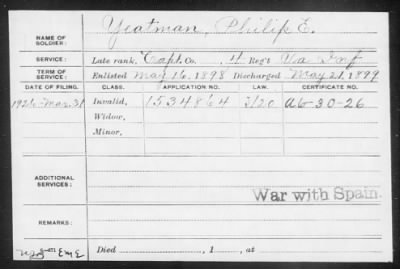 NAME OF SOLDIER: Yeatman, Philip E.
SERVICE: Late rank, Capt. Co. , 4 Reg't Va Inf
TERM OF SERVICE: Enlisted May 16, 1898 Discharged May 21, 1899
DATE OF FILING. CLASS. APPLICATION NO. LAW. CERTIFICATE NO.
1926-Mar.31 Invalid, 1534864 A6-30-26
Widow,
Minor,
ADDITIONAL SERVICES:
War with Spain.
REMARKS:
EME Died , 1 , at